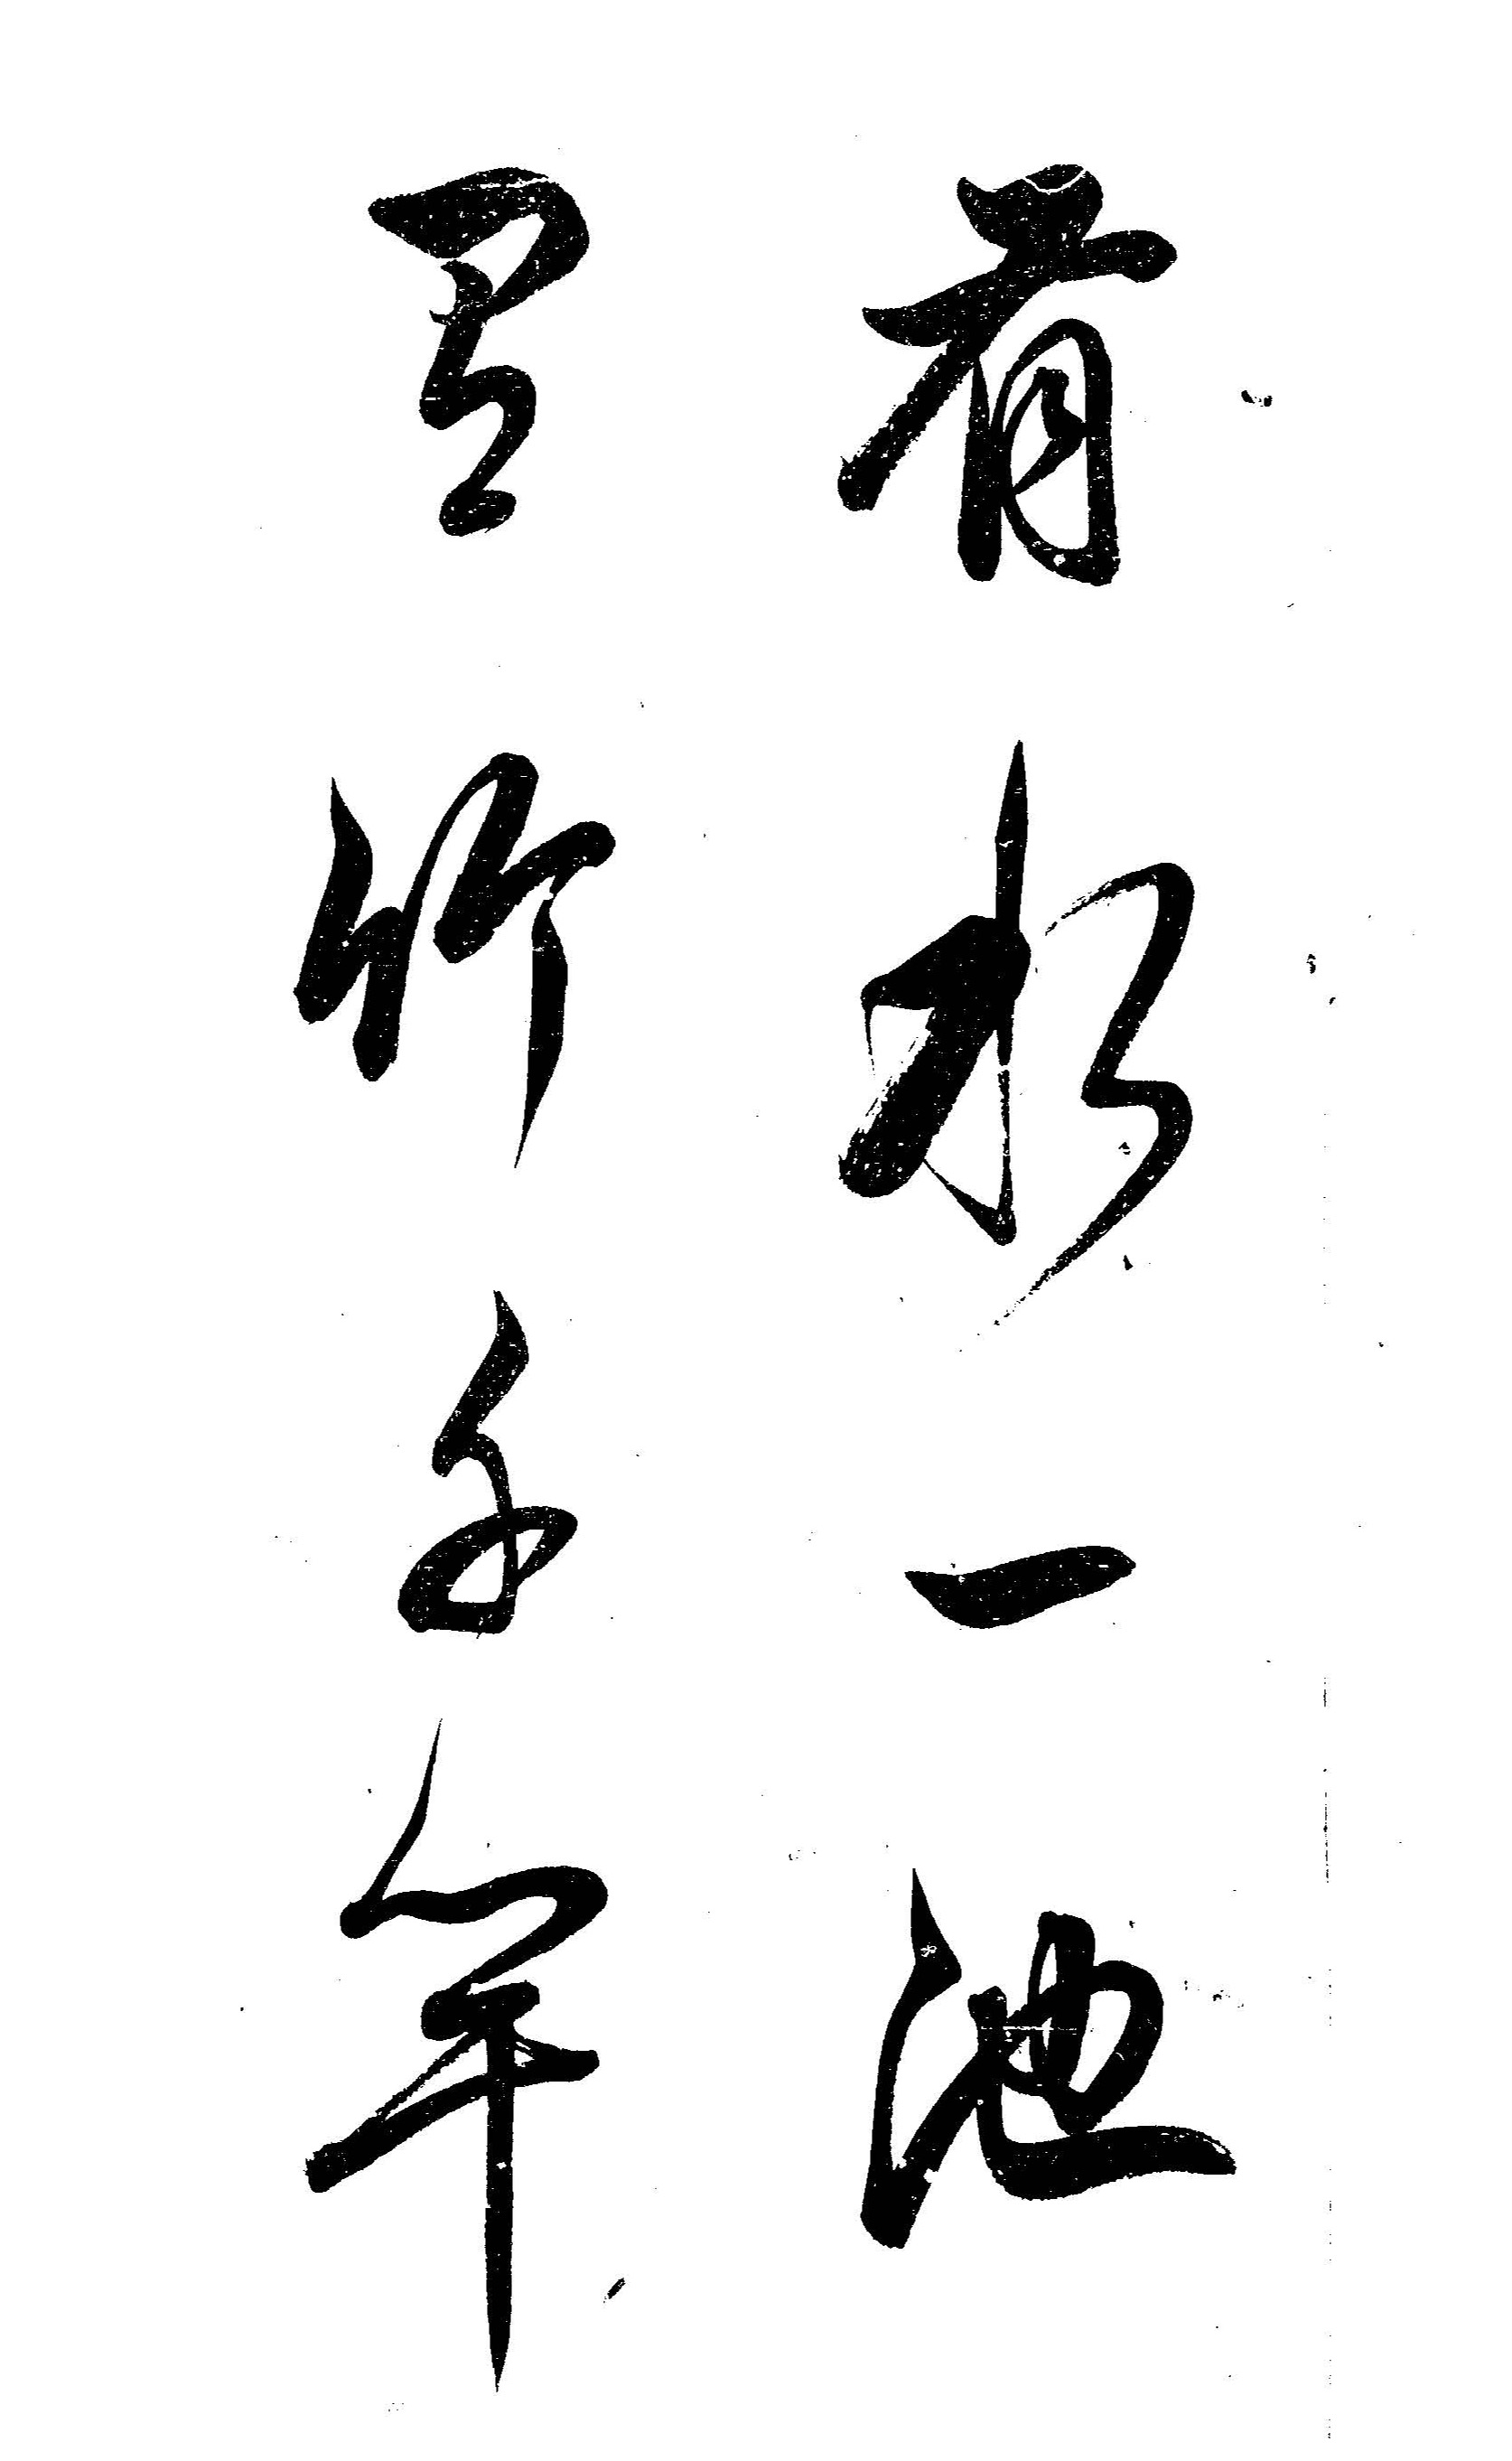 有水一池
有竹千竿